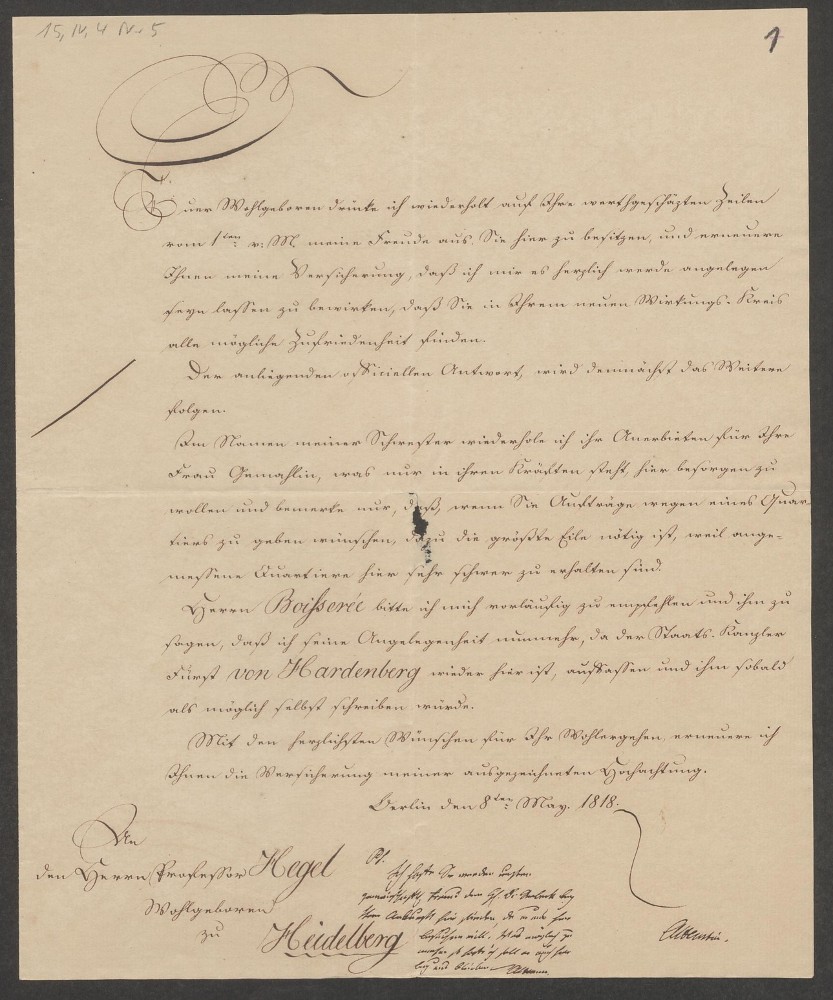 15, IV, 4 Nr. 5
1
Euer Wohlgeboren drücke ich wiederholt auf Ihre werthgeschäzten Zeilen
vom 1ten v: M. meine Freude aus, Sie hier zu besitzen, und erneuere
Ihnen meine Versicherung, daß ich mir es herzlich werde angelegen
seyn lassen zu bewirken, daß Sie in Ihrem neuen Wirkungs-Kreis
alle mögliche Zufriedenheit finden.
Der anliegenden officiellen Antwort, wird demnächst das Weitere
folgen.
Im Namen meiner Schwester wiederhole ich ihr Anerbieten für Ihre
Frau Gemahlin, was nur in ihren Kräften steht, hier besorgen zu
wollen und bemerke nur, daß, wenn Sie Aufträge wegen eines Quar-
tiers zu geben wünschen, dazu die größte Eile nötig ist, weil ange-
messene Quartiere hier sehr schwer zu erhalten sind.
Herrn Boisserée bitte ich mich vorläufig zu empfehlen und ihm zu
sagen, daß ich seine Angelegenheit nunmehr, da der Staats-Kanzler
Fürst von Hardenberg wieder hier ist, auffassen und ihm sobald
als möglich selbst schreiben würde.
Mit den herzlichsten Wünschen für Ihr Wohlergehen, erneuere ich
Ihnen die Versicherung meiner ausgezeichneten Hochachtung.
Berlin den 8ten May. 1818.
An
den Herrn Professor Hegel
Wohlgeboren
zu
Heidelberg
Ps.
Ich hoffe Sie werden unsern
Freund den
Ihrer Ankunft hier finden der uns hier
besuchen will.
so hoffe ich soll er auch hier
bey uns bleiben.
Altenstein.